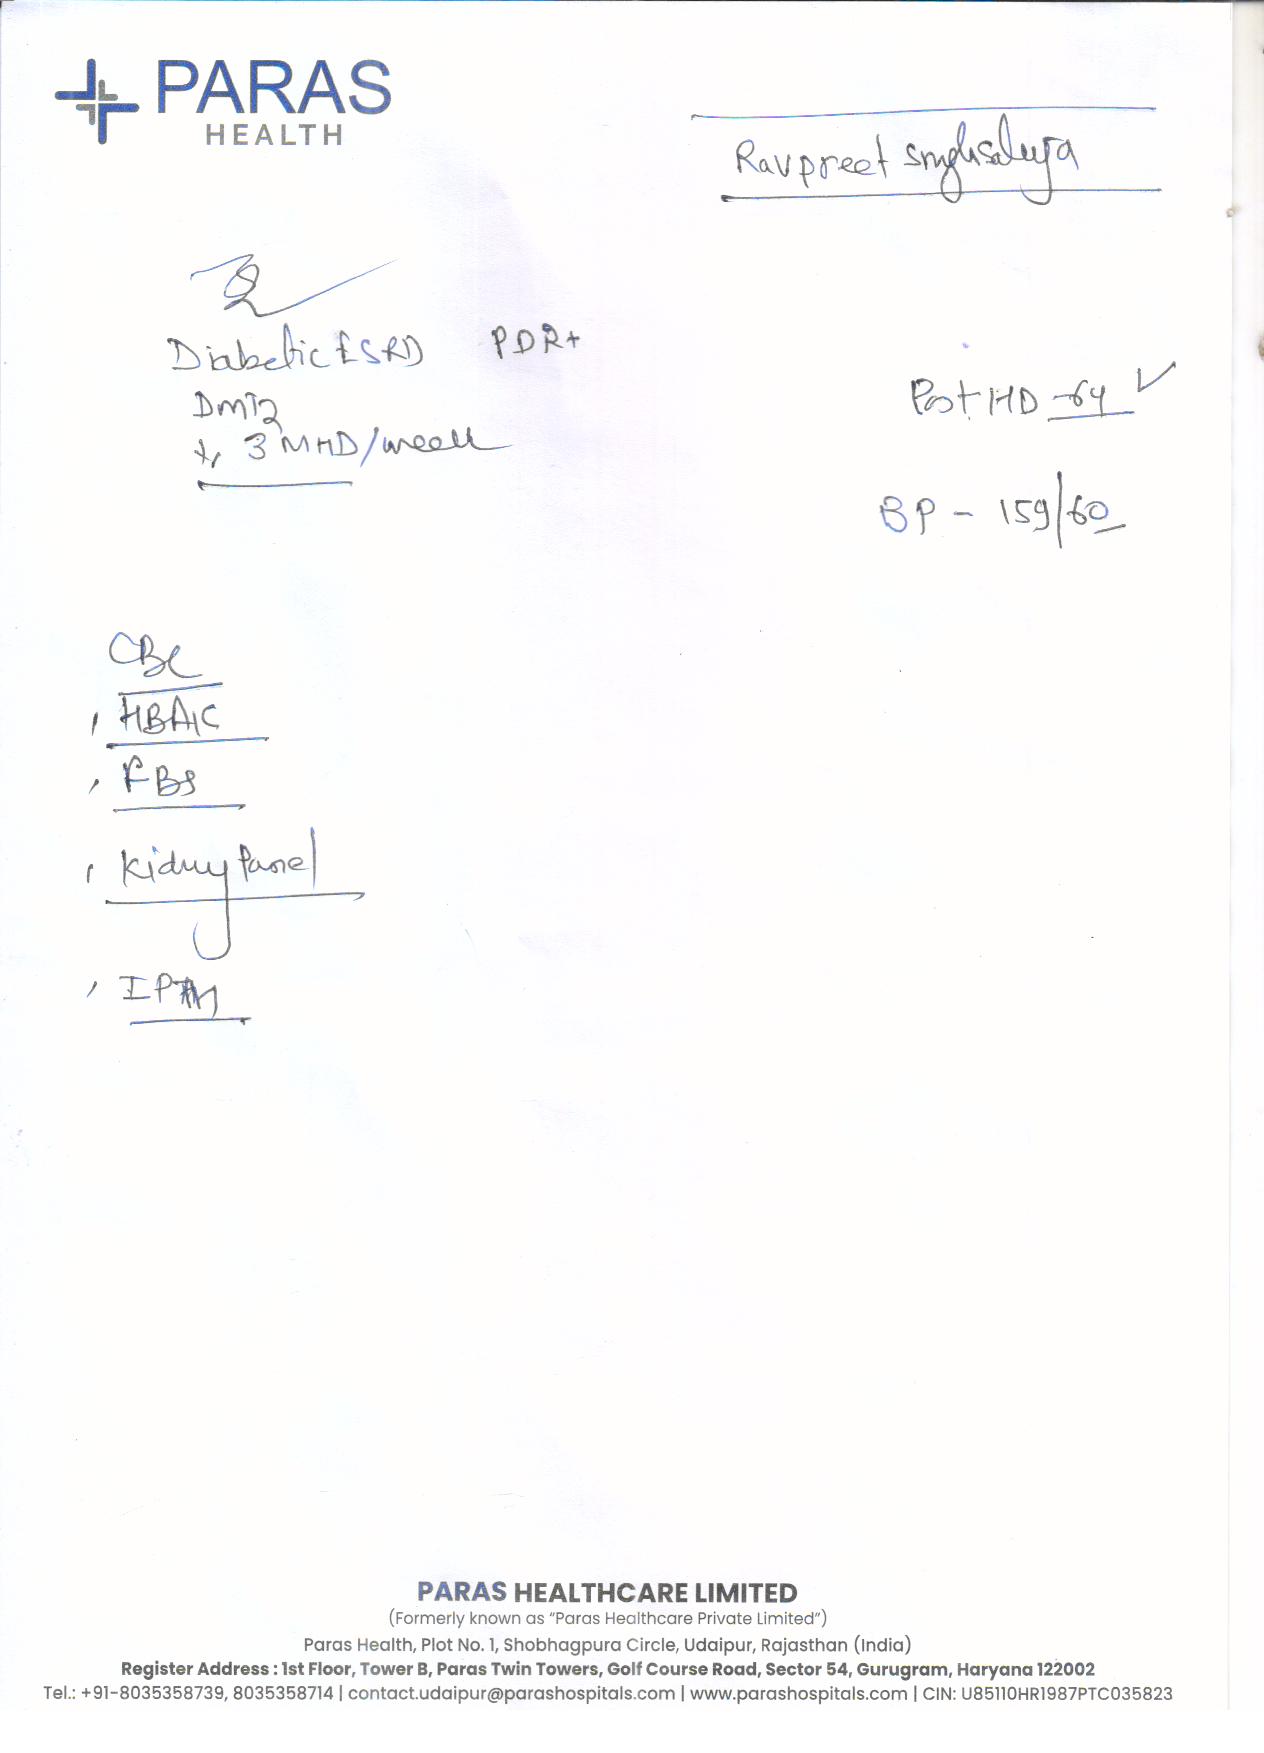 PARAS
HEALTH
Ravpreet Singh Saluja
Diabetic ESRD PDR+
DMT2
3 MHD/week
Post HD -64 ✓
BP - 159/60
CBC
HBA1C
FBS
Kidney Panel
PARAS HEALTHCARE LIMITED
(Formerly known as “Paras Healthcare Private Limited”)
Paras Health, Plot No. 1, Shobhagpura Circle, Udaipur, Rajasthan (India)
Register Address : 1st Floor, Tower B, Paras Twin Towers, Golf Course Road, Sector 54, Gurugram, Haryana 122002
Tel.: +91-8035358739, 8035358714 | contact.udaipur@parashospitals.com | www.parashospitals.com | CIN: U85110HR1987PTC035823